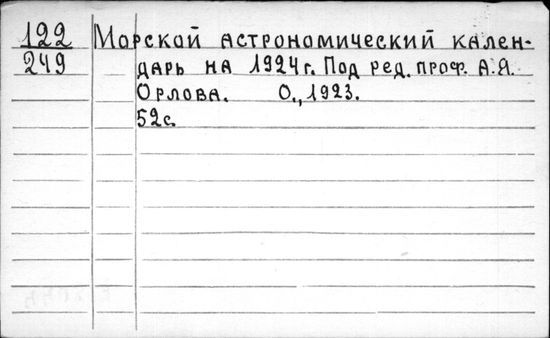 122 Морской астрономический кален-
249 дарь на 1924г. Под ред. проф. А.Я.
Орлова. О., 1923.
52с.